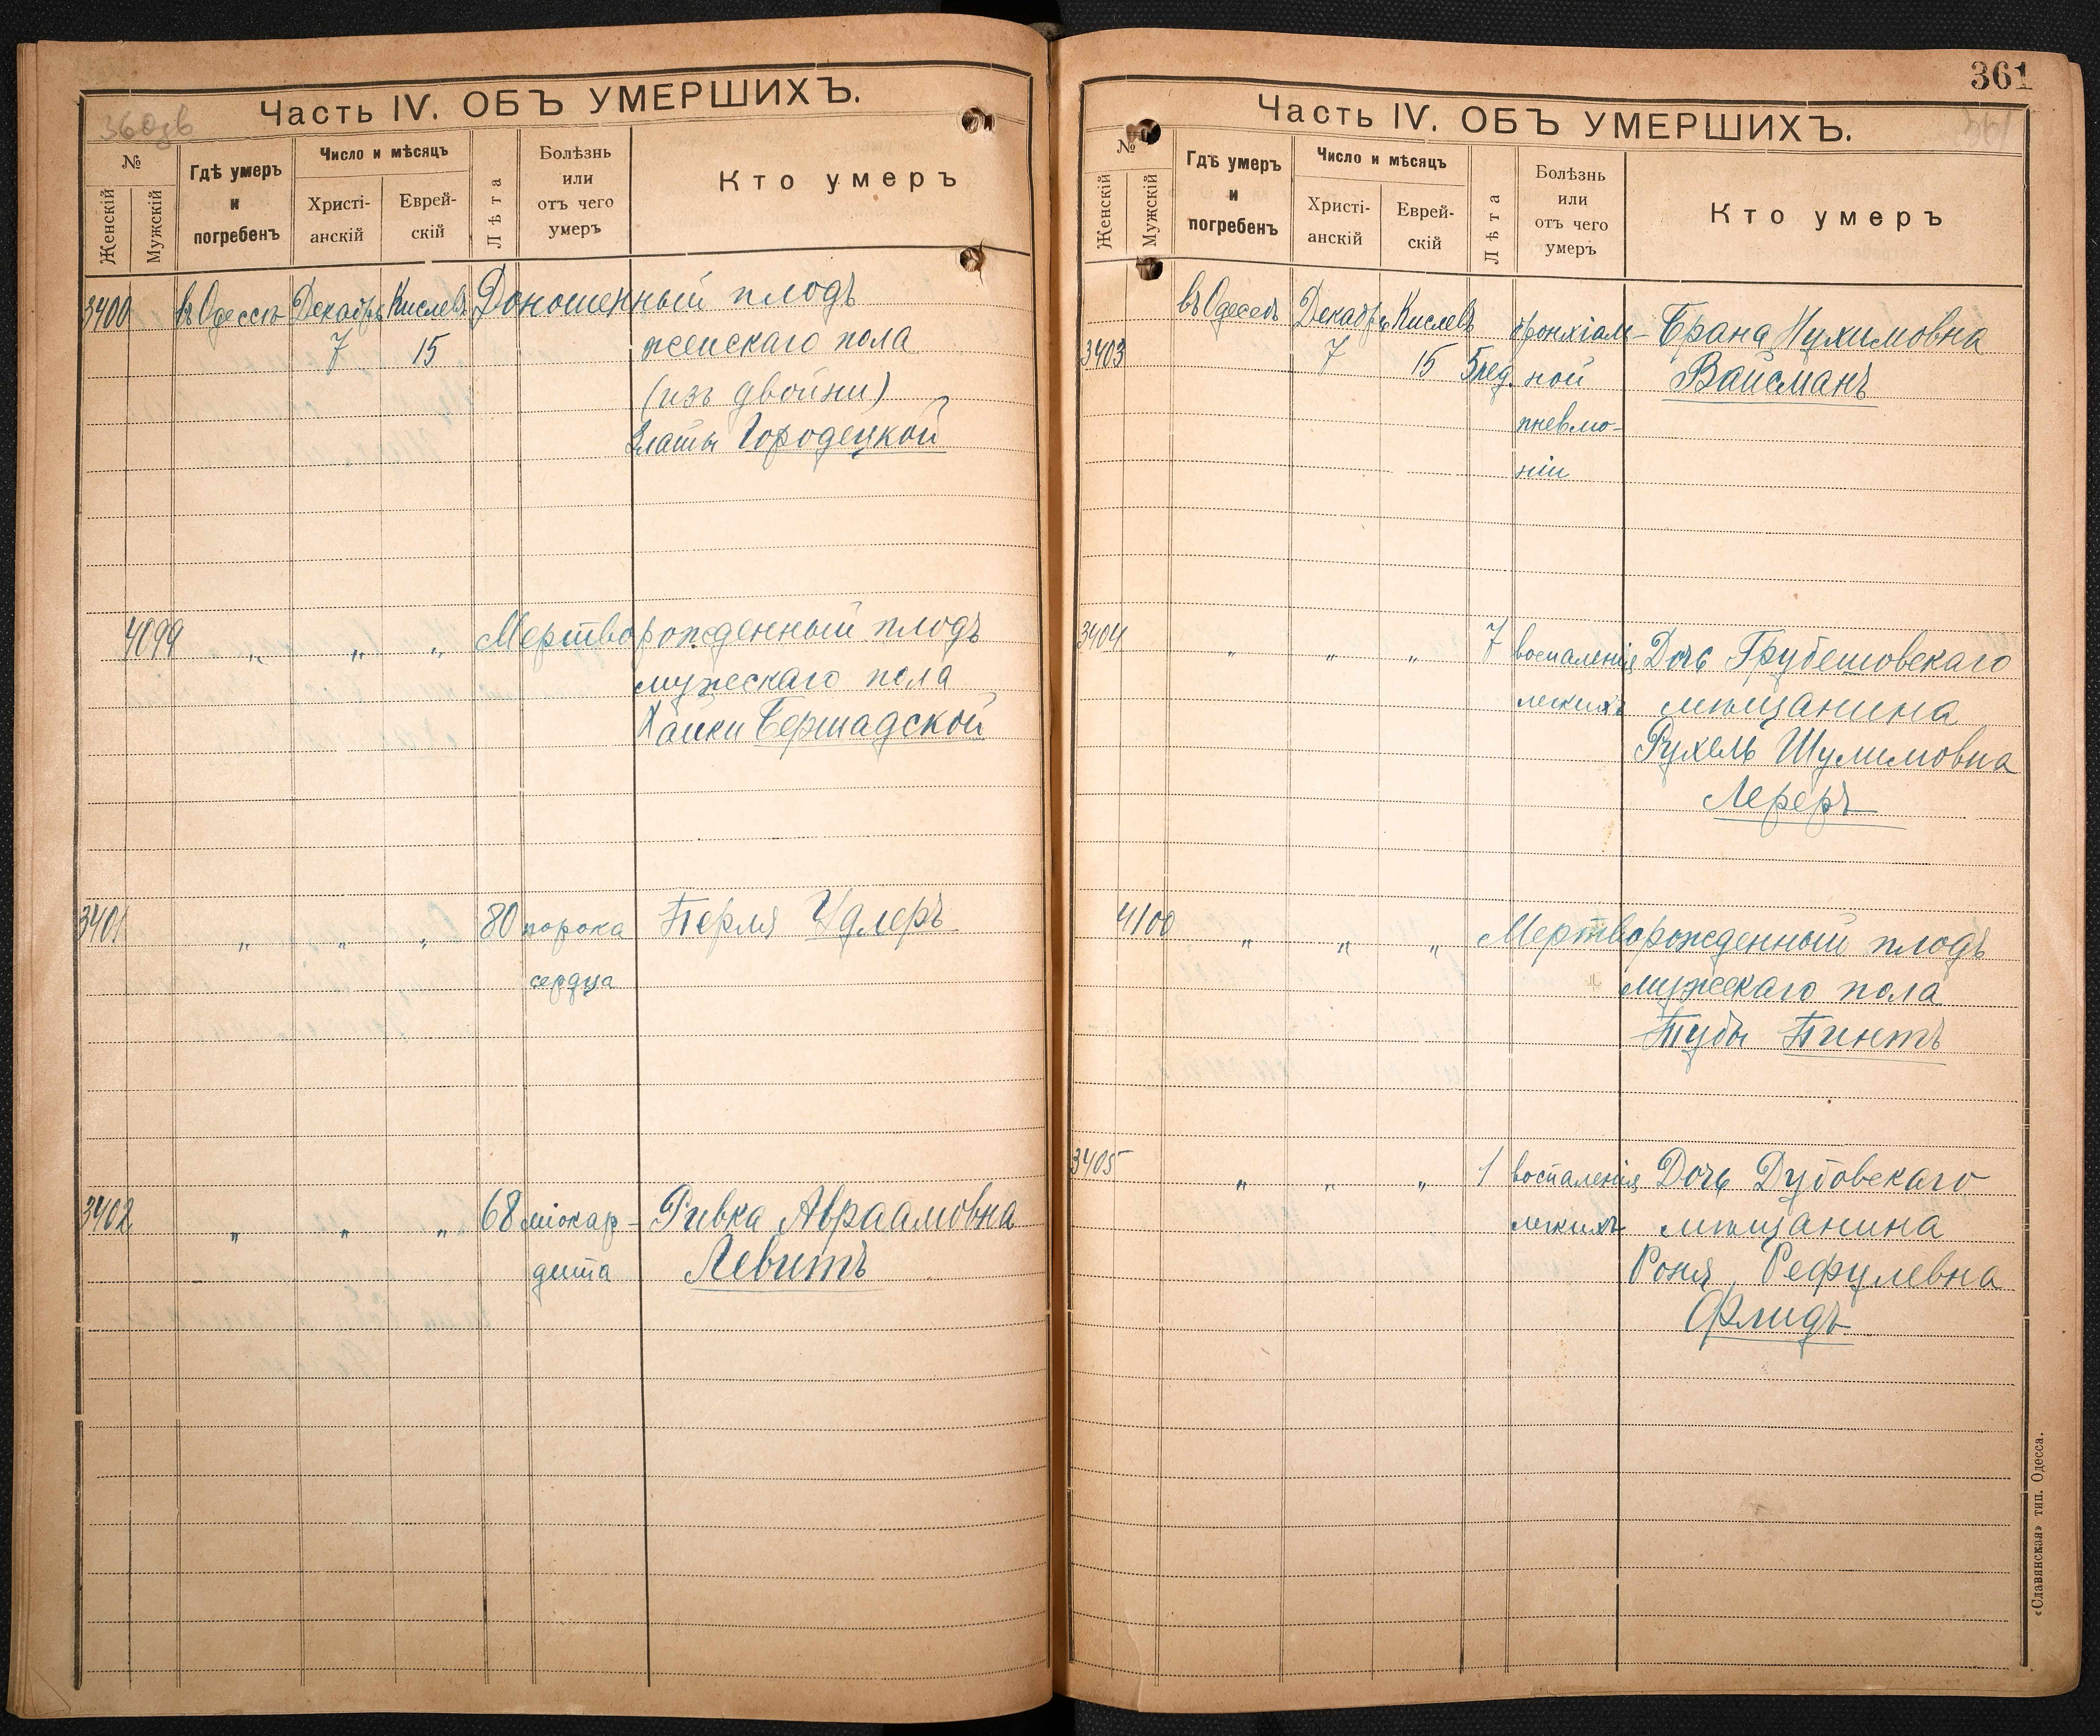 360зв
Часть IV. ОБЪ УМЕРШИХЪ.
№
Женскій
Мужскій
Гдѣ умеръ
и
погребенъ
Число и мѣсяцъ
Христі-
анскій
Еврей-
скій
Лѣта
Болѣзнь
или
отъ чего
умеръ
Кто умеръ
3400 въ Одессѣ Декабрь Кислевъ Доношенный плодъ
7 15 женскаго пола
(изъ двойни)
Златы Городецкой
4099 „ „ „ Мертворожденный плодъ
мужескаго пола
Хайки Бершадской
3401 „ „ „ 80 порока Перля Удлеръ
сердца
3402 „ „ „ 68 міокар- Ривка Авраамовна
дита Левитъ
361
Часть IV. ОБЪ УМЕРШИХЪ.
361
№
Женскій
Мужскій
Гдѣ умеръ
и
погребенъ
Число и мѣсяцъ
Христі-
анскій
Еврей-
скій
Лѣта
Болѣзнь
или
отъ чего
умеръ
Кто умеръ
въ Одессѣ Декабрь Кислевъ бронхіаль- Брана Нухимовна
3403 7 15 5 нед. ной Вайсманъ
пневмо-
ніи
3404 „ „ „ 7 воспаленія Дочь Грубешовскаго
легкихъ мѣщанина
Рухель Шулимовна
Лереръ
4100 „ „ „ Мертворожденный плодъ
мужескаго пола
Тубы Пинтъ
3405 „ „ „ 1 воспаленія Дочь Дубовскаго
легкихъ мѣщанина
Роня Рефулевна
Флидъ
«Славянская» тип. Одесса.